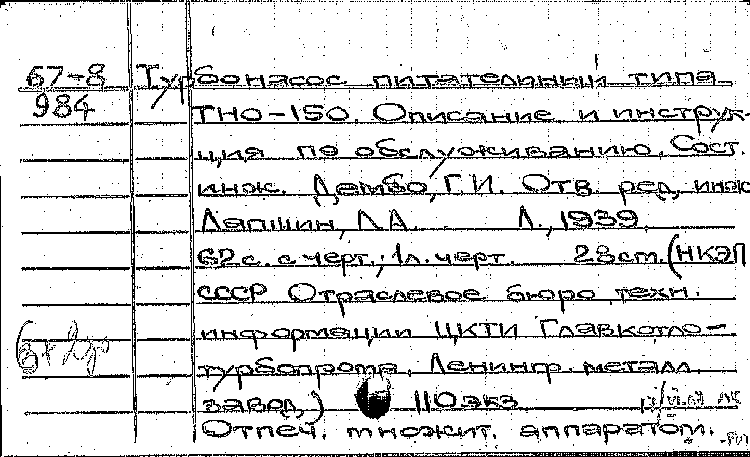 67-8 Турбонасос питательный типа
984 ТНО-150. Описание и инструк-
ция по обслуживанию. Сост.
инж. Дембо, Г.И. Отв. ред. инж
Ляпшин, Л.А. Л., 1939.
62 с. с черт.; 1 л. черт. 28 cm. (НКЭП
СССР Отраслевое бюро техн.
информации ЦКТИ Главкотло-
турбопрома. Ленингр. металл.
завод.) 110 экз.
Отпеч. множит. аппаратом.